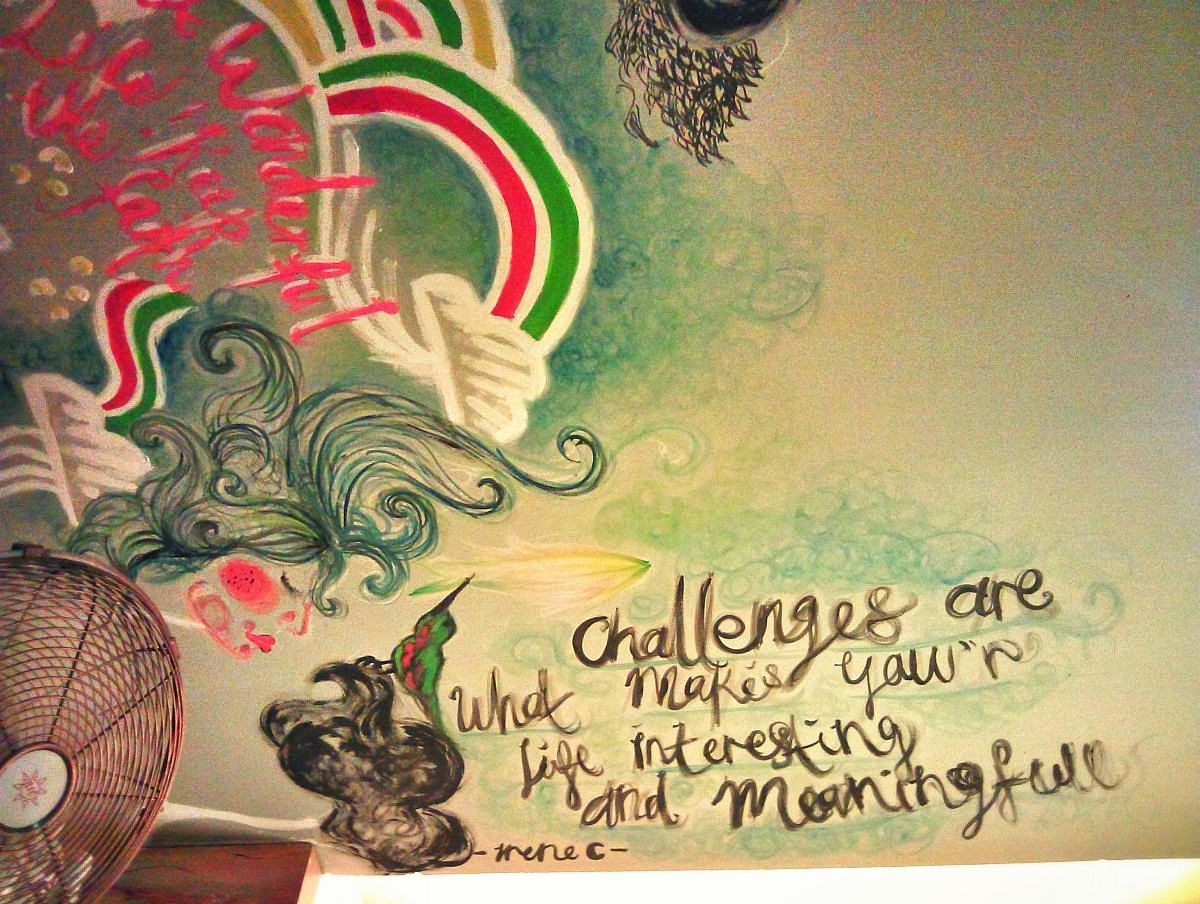 Wonderful
Life
the
challenges are
What makes yaw"r
life interesting
and meaningfull